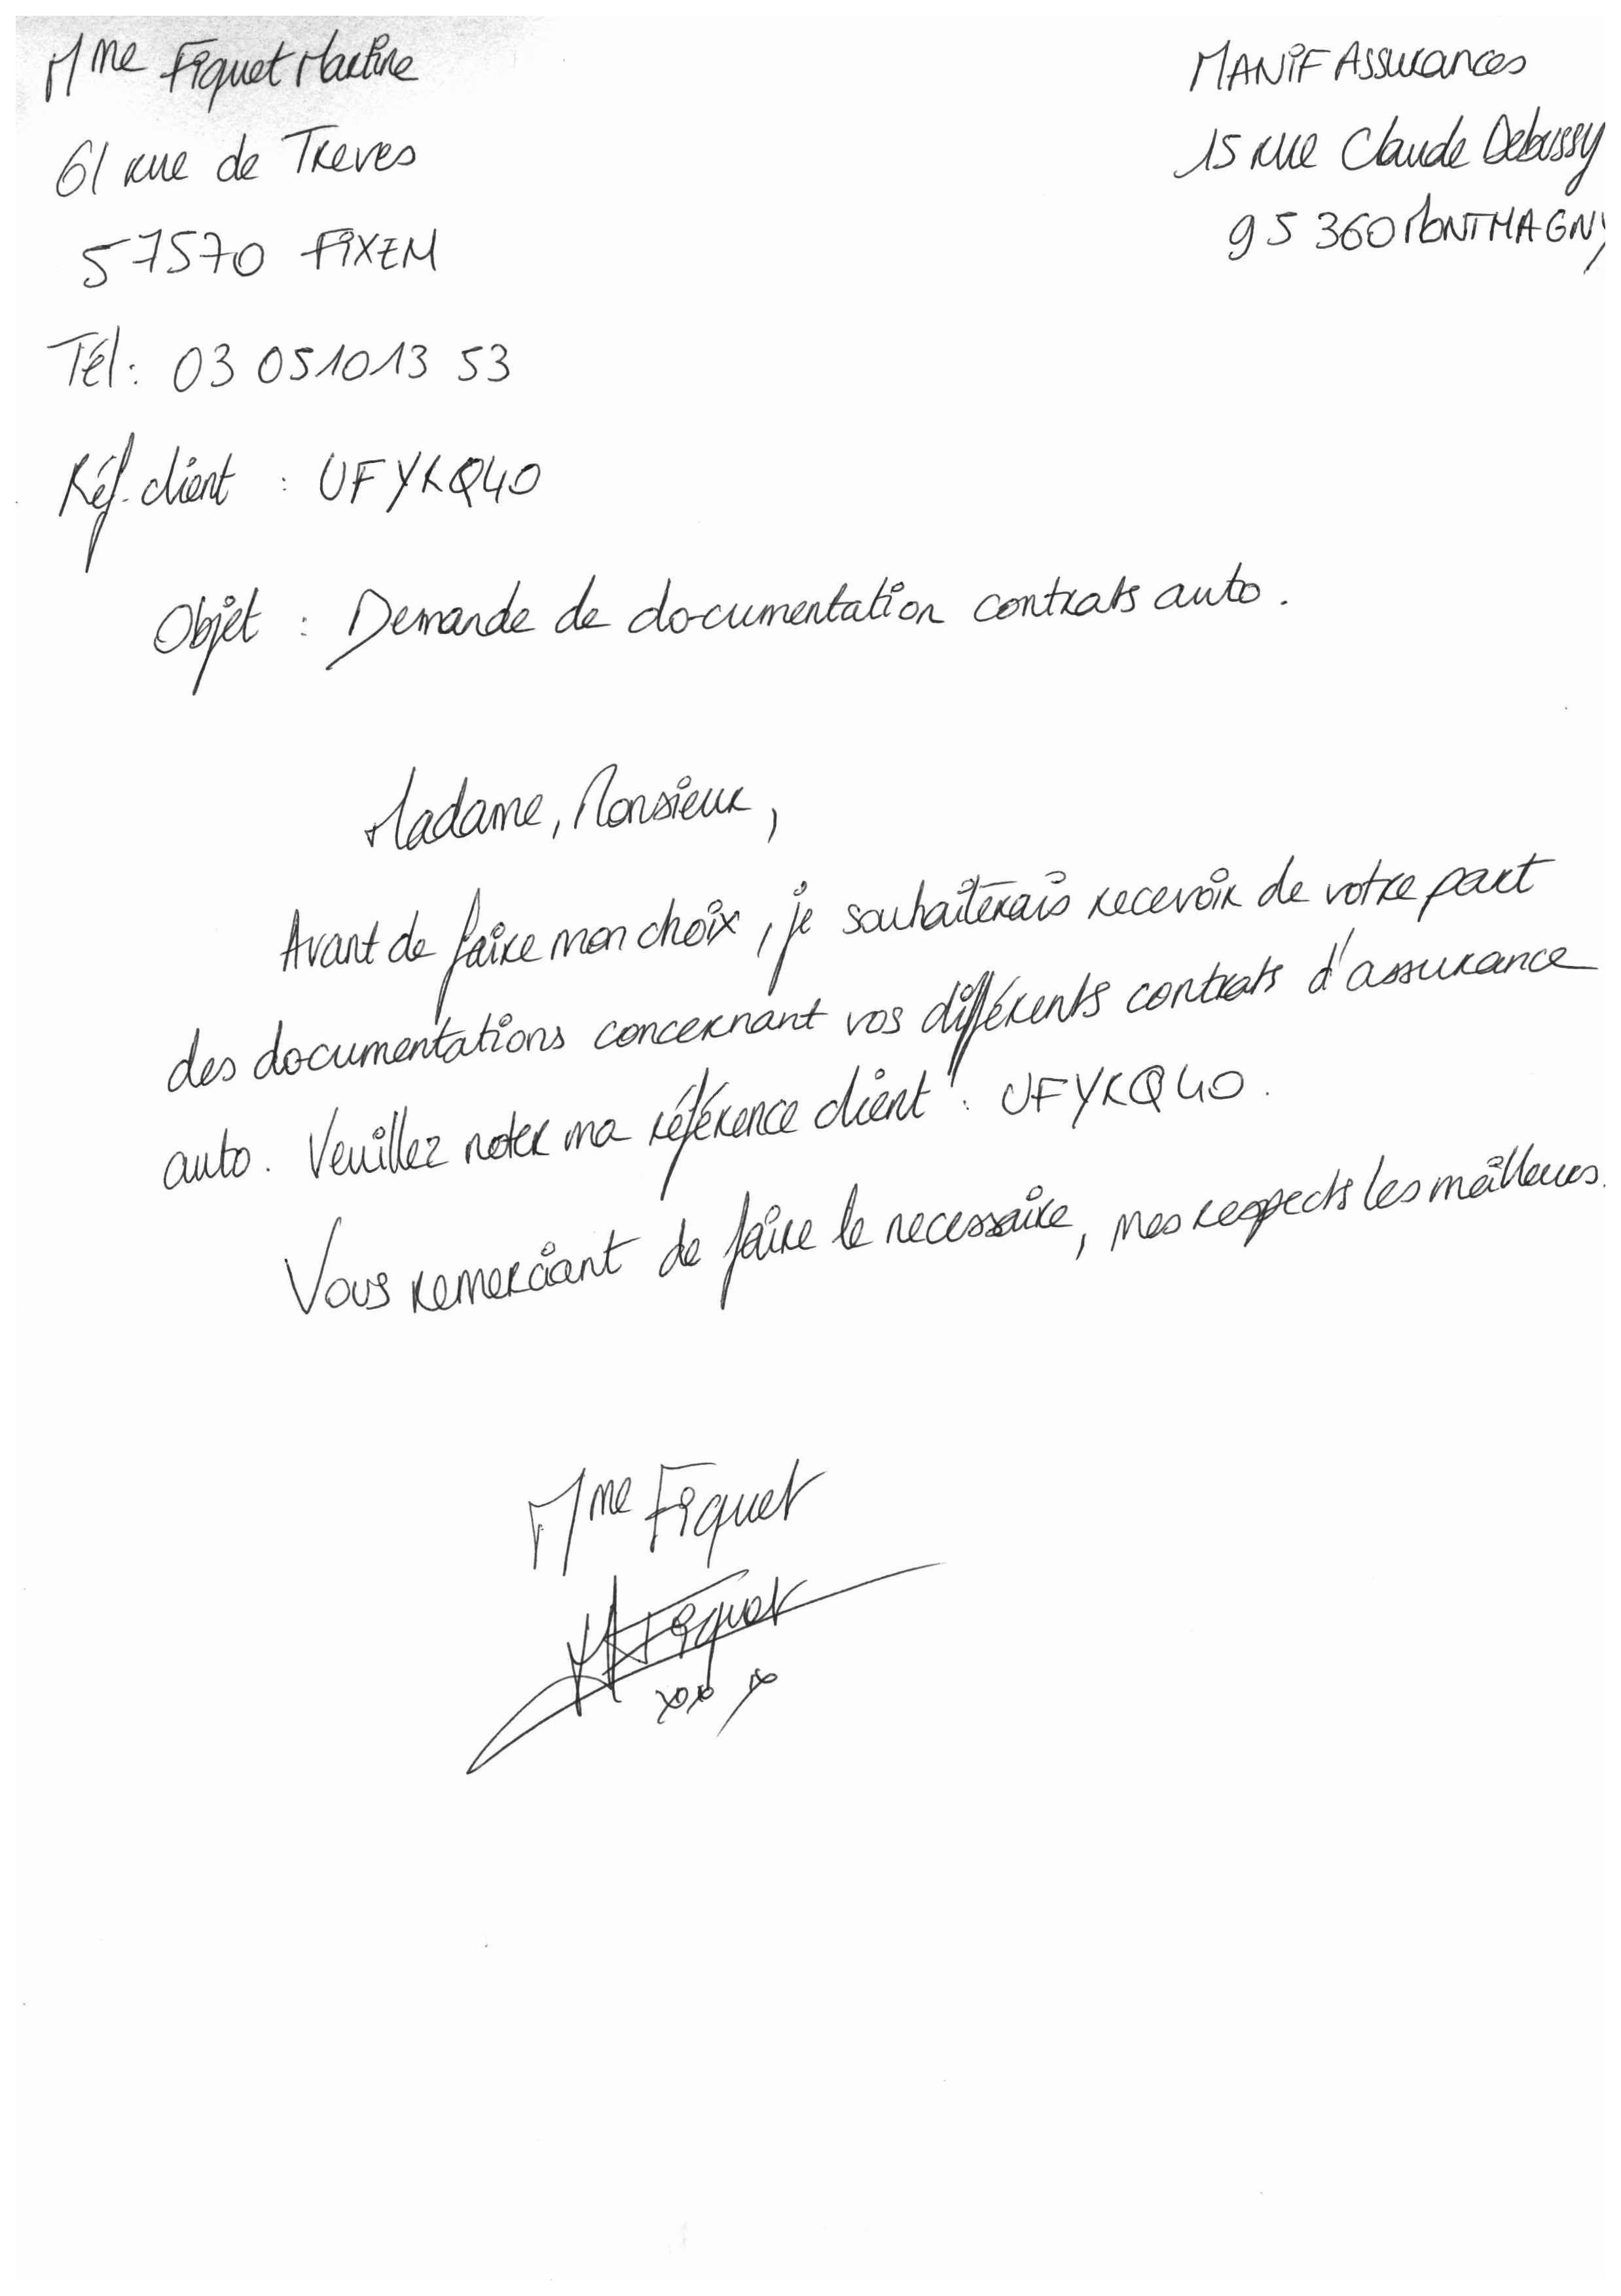 Mme Fiquet Martine
61 rue de Treves
57570 FIXEM
Tél: 03 05 10 13 53
Réf. client : UFYKQ40
MANIF Assurances
15 rue Claude Debussy
95 360 MONTMAGNY
Objet : Demande de documentation contrats auto.
Madame, Monsieur,
Avant de faire mon choix, je souhaiterais recevoir de votre part
des documentations concernant vos différents contrats d'assurance
auto. Veuillez noter ma référence client : UFYKQ40.
Vous remerciant de faire le necessaire, mes respects les meilleurs.
Mme Fiquet
Fiquet